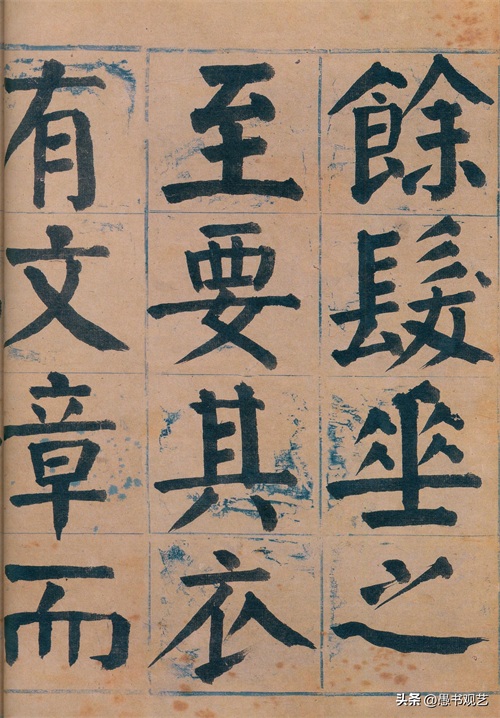 餘髮坐之
至要其衣
有文章而
头条 @愚书观艺